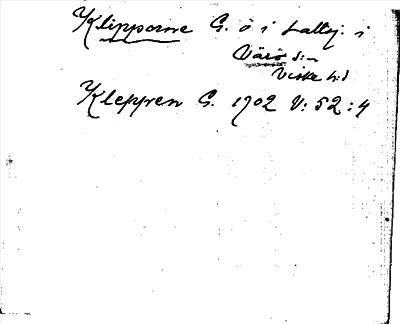 Klipporne G. ö i saltsj. i
Värö s:n
Viske h:d
Kleppren G. 1902 V: 52 : 4